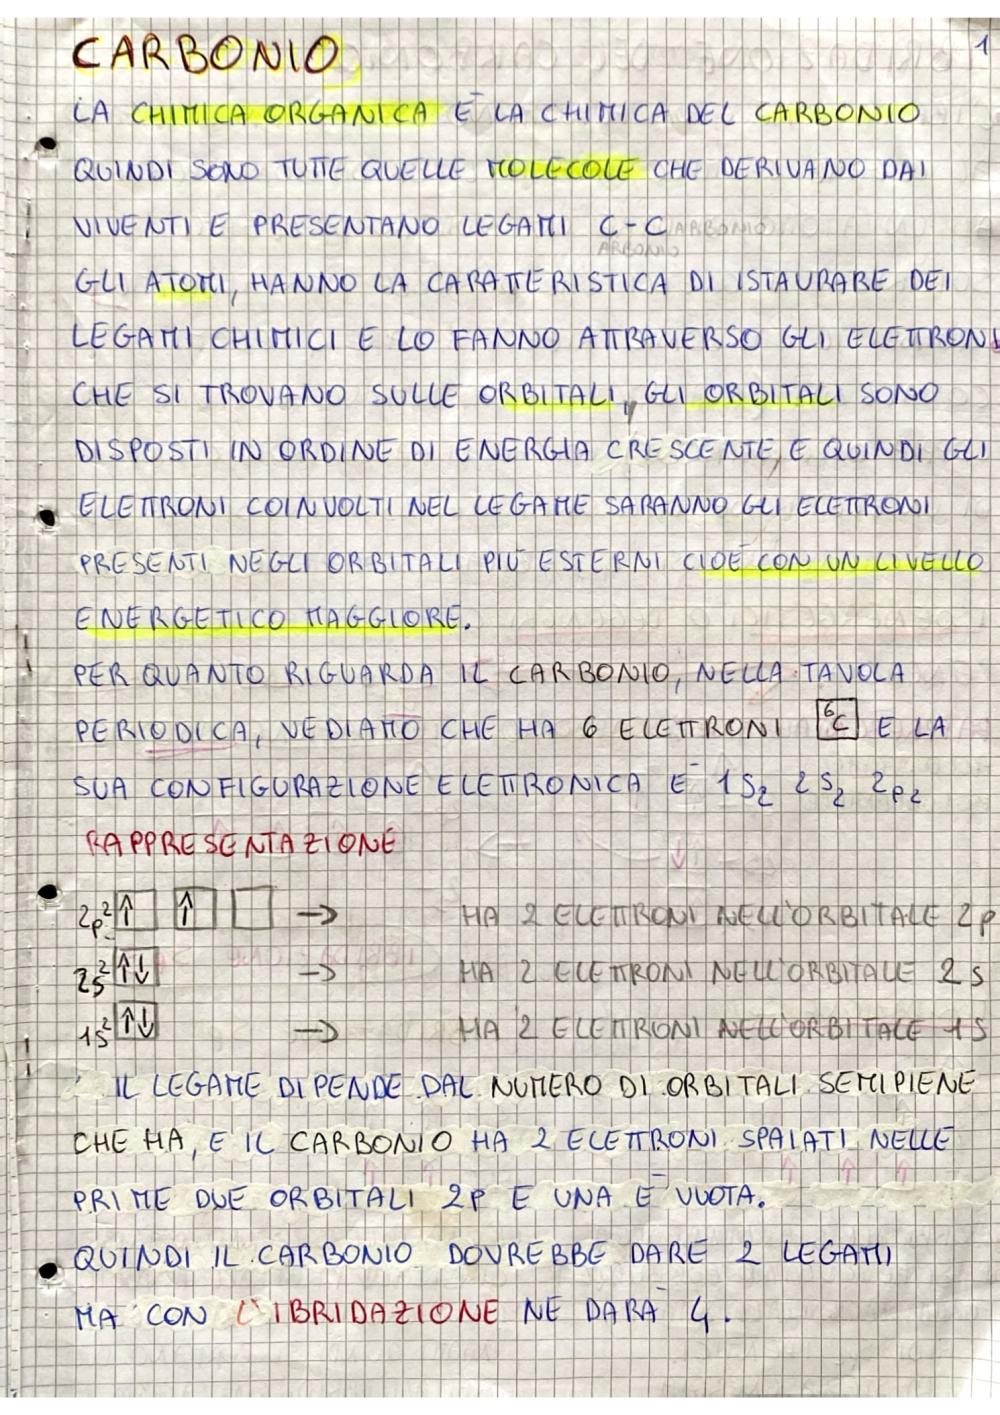 CARBONIO
1
LA CHIMICA ORGANICA È LA CHIMICA DEL CARBONIO
QUINDI SONO TUTTE QUELLE MOLECOLE CHE DERIVANO DAI
VIVENTI E PRESENTANO LEGAMI C-C ARBONIO
ARBONIO
GLI ATOMI, HANNO LA CARATTERISTICA DI ISTAURARE DEI
LEGAMI CHIMICI E LO FANNO ATTRAVERSO GLI ELETTRONI
CHE SI TROVANO SULLE ORBITALI, GLI ORBITALI SONO
DISPOSTI IN ORDINE DI ENERGIA CRESCENTE, E QUINDI GLI
ELETTRONI COINVOLTI NEL LEGAME SARANNO GLI ELETTRONI
PRESENTI NEGLI ORBITALI PIÙ ESTERNI CIOÈ CON UN LIVELLO
ENERGETICO MAGGIORE.
PER QUANTO RIGUARDA IL CARBONIO, NELLA TAVOLA
PERIODICA, VEDIAMO CHE HA 6 ELETTRONI ⁶C E LA
SUA CONFIGURAZIONE ELETTRONICA È 1S₂ 2S₂ 2p₂
RAPPRESENTAZIONE
2p² ↑ ↑ → HA 2 ELETTRONI NELL'ORBITALE 2p
2s² ↑↓ → HA 2 ELETTRONI NELL'ORBITALE 2s
1s² ↑↓ → HA 2 ELETTRONI NELL'ORBITALE 1S
IL LEGAME DIPENDE DAL NUMERO DI ORBITALI SEMIPIENE
CHE HA, E IL CARBONIO HA 2 ELETTRONI SPAIATI NELLE
PRIME DUE ORBITALI 2P E UNA È VUOTA.
QUINDI IL CARBONIO DOVREBBE DARE 2 LEGAMI
MA CON L'IBRIDAZIONE NE DARÀ 4.